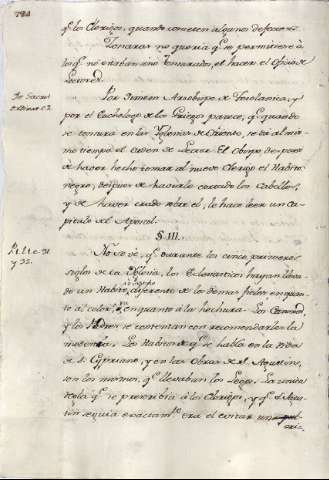 q.e los Clerigos, quando cometen algunos defectos.
Tomaras no queria q.e se permitiese à
los q.e no estaban aun tonsurados, el hacer el oficio de
Lectores.
Por Simeon Arzobispo de Tesalonica, y
por el Euchologio de los Griegos parece, q.e quando
se tonsura en las Iglesias de Oriente, se da al mis-
mo tiempo el orden de Lector. El Obispo, despues
de haver hecho tomar al nuevo Clerigo el Habito
negro, despues de haverle cortado los Cabellos,
y de haver orado sobre el, le hace leer un ca-
pitulo del Apostol.
§ III.
No se ve, q.e durante los cinco primeros
siglos de la Iglesia, los Eclesiasticos hayan llevado
de un Habito diferente de los demas fieles en quan-
to al color, en quanto à la hechura. Los Canones,
y los Padres se contentan con recomendarles la
modestia. Los Habitos de q.e se habla en la Vida
de S. Cypriano, y en las Obras de S. Agustin,
son los mismos, q.e llevaban los Legos. La unica
regla q.e se prescribia à los Clerigos, y q.e S. Agus-
tin seguia exactam.te era el evitar
P. 1. l. 1. c. 31
y 32.